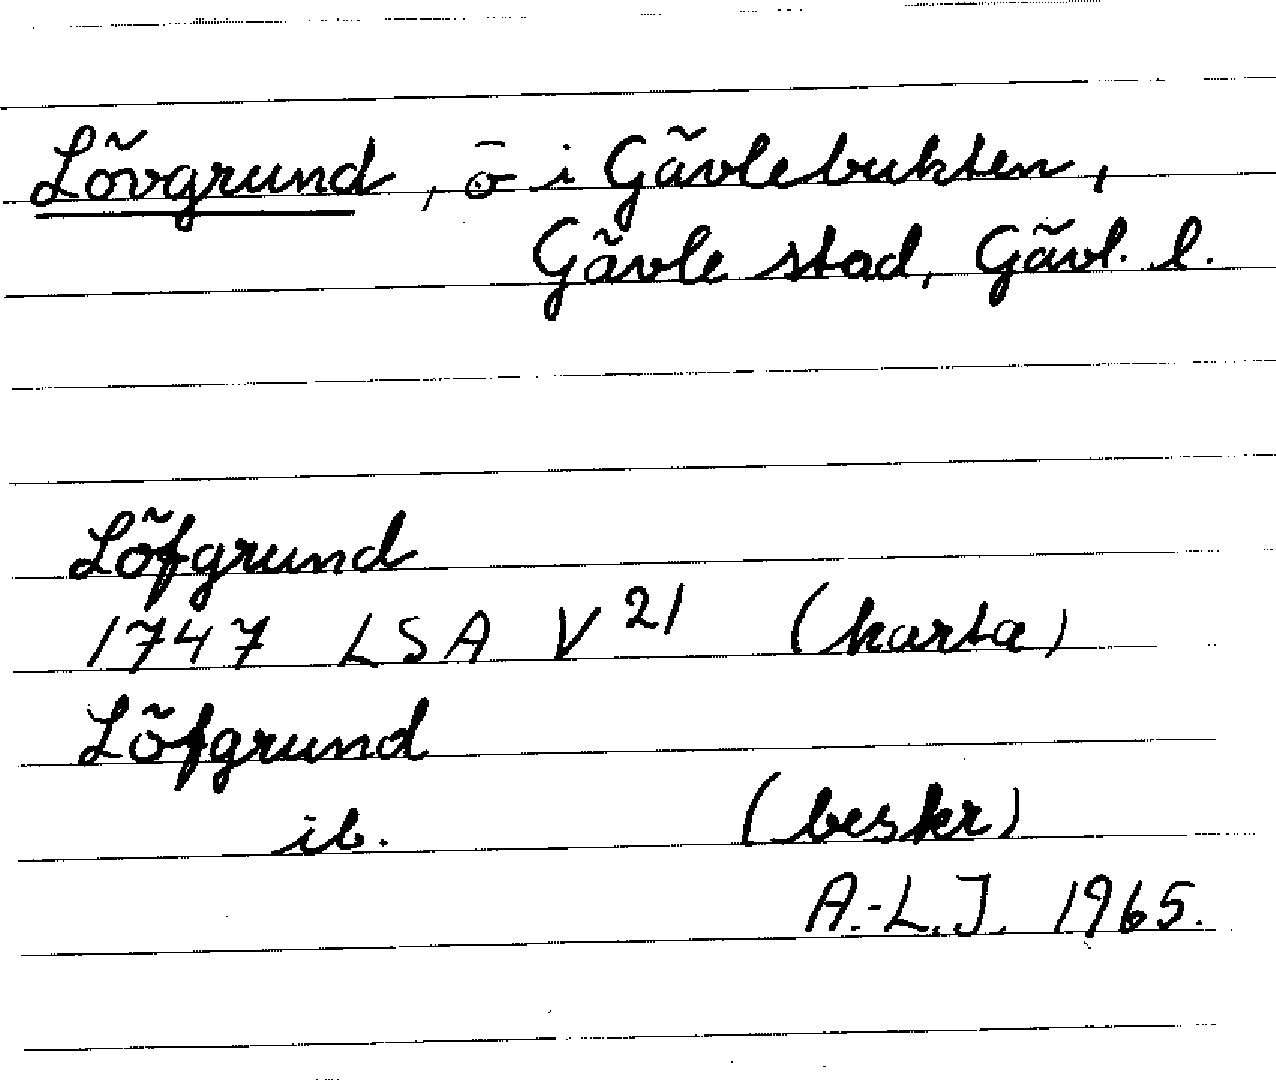 Lövgrund, ö i Gävlebukten,
Gävle stad, Gävl. l.
Löfgrund
1747 LSA V 21 (karta)
Löfgrund
ib. (beskr)
A.-L.J. 1965.